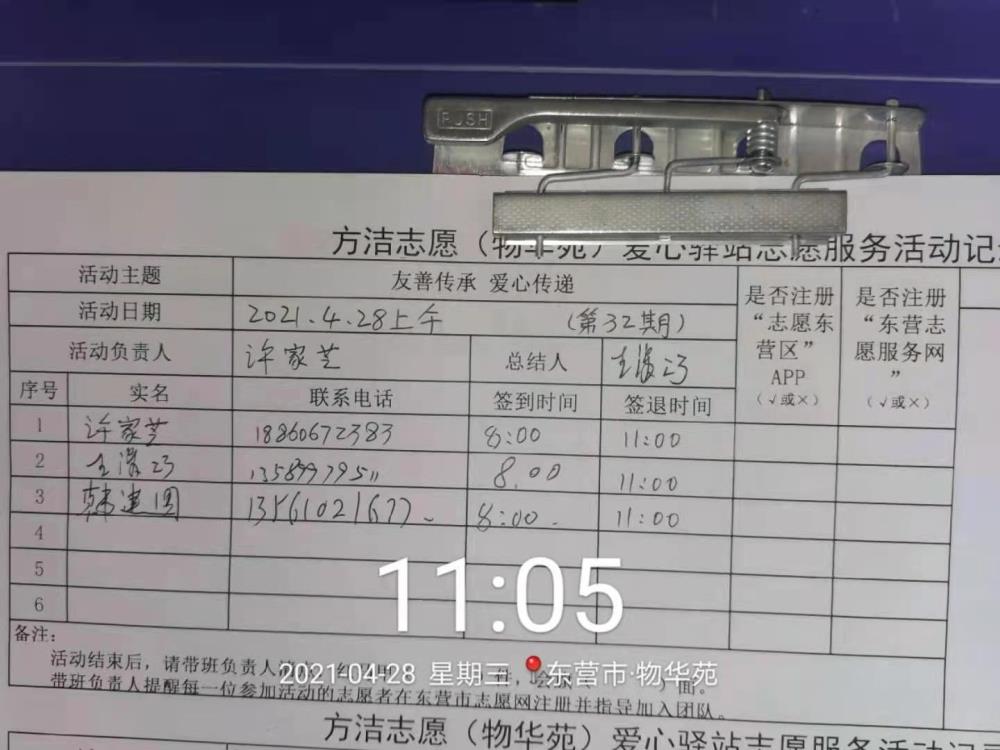 PUSH
方洁志愿（物华苑）爱心驿站志愿服务活动记
活动主题 友善传承 爱心传递 是否注册“志愿东营区”APP（√或×） 是否注册“东营志愿服务网”（√或×）
活动日期 2021.4.28上午 （第32期）
活动负责人 许家芝 总结人
序号 实名 联系电话 签到时间 签退时间
1 许家芝 18860672383 8:00 11:00
2 8.00 11:00
3 韩建国 13561021677 8:00 11:00
4
5
6
11:05
备注：
活动结束后，请带班负责人
2021-04-28 星期三 东营市·物华苑
带班负责人提醒每一位参加活动的志愿者在东营市志愿网注册并指导加入团队。
方洁志愿（物华苑）爱心驿站志愿服务活动记